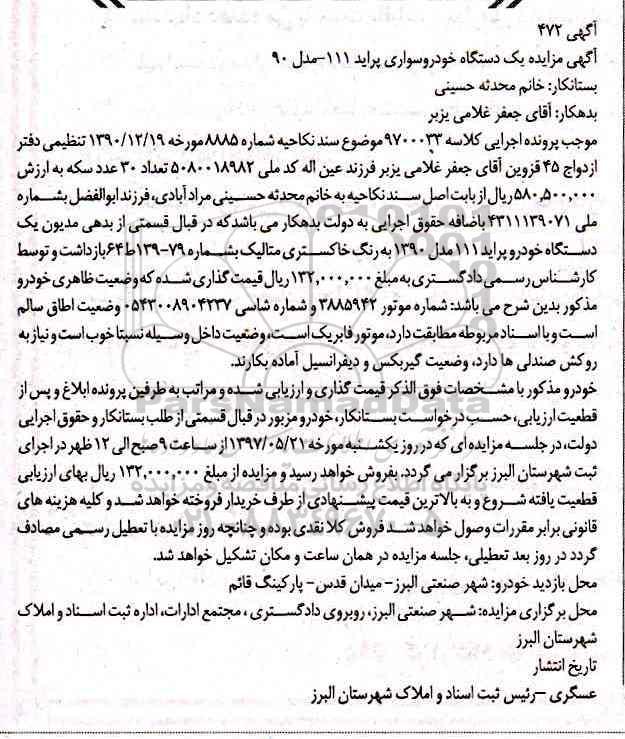 آگهی ۴۷۲
آگهی مزایده یک دستگاه خودروسواری پراید ۱۱۱-مدل ۹۰
بستانکار: خانم محدثه حسینی
بدهکار: آقای جعفر غلامی یزبر
موجب پرونده اجرایی کلاسه ۹۷۰۰۰۳۳ موضوع سند نکاحیه شماره ۸۸۸۵مورخه ۱۳۹۰/۱۲/۱۹ تنظیمی دفتر
ازدواج ۴۵ قزوین آقای جعفر غلامی یزبر فرزند عین اله کد ملی ۵۰۸۰۰۱۸۹۸۲ تعداد ۳۰ عدد سکه به ارزش
۵۸۰,۵۰۰,۰۰۰ریال از بابت اصل سند نکاحیه به خانم محدثه حسینی مراد آبادی، فرزند ابوالفضل بشماره
ملی ۴۳۱۱۱۳۹۰۷۱ باضافه حقوق اجرایی به دولت بدهکار می باشد که در قبال قسمتی از بدهی مدیون یک
دستگاه خودرو پراید ۱۱۱ مدل ۱۳۹۰ به رنگ خاکستری متالیک بشماره ۷۹-۱۳۹ط۶۴بازداشت و توسط
کارشناس رسمی دادگستری به مبلغ ۱۳۲,۰۰۰,۰۰۰ ریال قیمت گذاری شده که وضعیت ظاهری خودرو
مذکور بدین شرح می باشد: شماره موتور ۳۸۸۵۹۴۲ و شماره شاسی ۰۵۴۳۰۰۸۹۰۴۲۳۷ وضعیت اطاق سالم
است و با اسناد مربوطه مطابقت دارد، موتور فابریک است، وضعیت داخل وسیله نسبتا خوب است و نیاز به
روکش صندلی ها دارد، وضعیت گیربکس و دیفرانسیل آماده بکارند.
خودرو مذکور با مشخصات فوق الذکر قیمت گذاری و ارزیابی شده و مراتب به طرفین پرونده ابلاغ و پس از
قطعیت ارزیابی، حسب درخواست بستانکار، خودرو مزبور در قبال قسمتی از طلب بستانکار و حقوق اجرایی
دولت، در جلسه مزایده ای که در روز یکشنبه مورخه ۱۳۹۷/۰۵/۲۱از ساعت ۹ صبح الی ۱۲ ظهر در اجرای
ثبت شهرستان البرز برگزار می گردد، بفروش خواهد رسید و مزایده از مبلغ ۱۳۲,۰۰۰,۰۰۰ ریال بهای ارزیابی
قطعیت یافته شروع و به بالاترین قیمت پیشنهادی از طرف خریدار فروخته خواهد شد و کلیه هزینه های
قانونی برابر مقررات وصول خواهد شد فروش کلا نقدی بوده و چنانچه روز مزایده با تعطیل رسمی مصادف
گردد در روز بعد تعطیلی، جلسه مزایده در همان ساعت و مکان تشکیل خواهد شد.
محل بازدید خودرو: شهر صنعتی البرز- میدان قدس- پارکینگ قائم
محل برگزاری مزایده: شهر صنعتی البرز، روبروی دادگستری ، مجتمع ادارات، اداره ثبت اسناد و املاک
شهرستان البرز
تاریخ انتشار
عسگری –رئیس ثبت اسناد و املاک شهرستان البرز
ParsNamadData